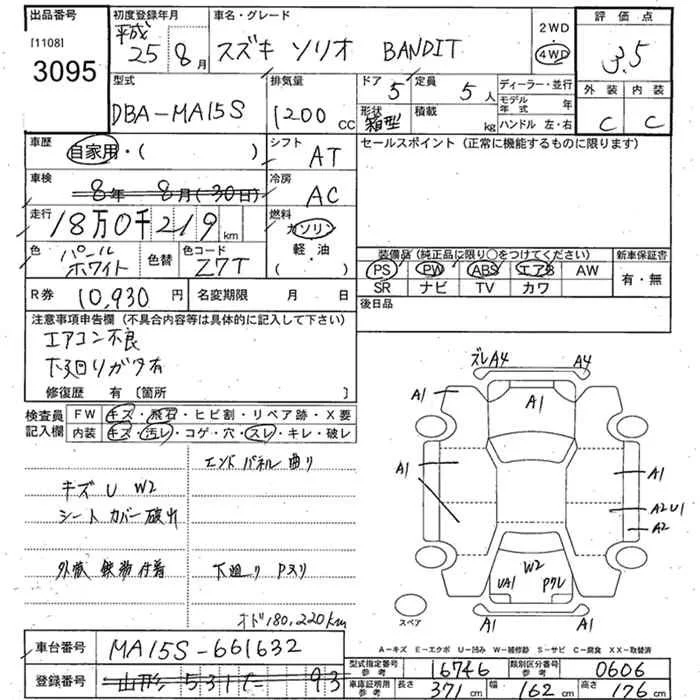 出品番号
[1108]
3095
初度登録年月
平成
25 8月
車名・グレード
スズキ ソリオ BANDIT
2WD
4WD
評価点
3.5
外装 内装
C C
型式
DBA-MA15S
排気量
1200 cc
ドア 5
定員 5人
形状 箱型
積載 kg
ディーラー・並行
モデル年式 年
ハンドル 左・右
車歴
自家用・( )
シフト
AT
セールスポイント (正常に機能するものに限ります)
車検
8年 8月(30日)
冷房
AC
走行
18万0千219km
燃料
ガソリン
軽・油
( )
色
パールホワイト
色替
色コード
Z7T
装備品(純正品に限り○をつけてください)
新車保証書
PS PW ABS エアB AW
SR ナビ TV カワ
有・無
後日品
R券 10,930円
名変期限 月 日
注意事項申告欄 (不具合内容等は具体的に記入して下さい)
エアコン不良
下廻りガタ有
修復歴 有〔箇所 〕
検査員記入欄
FW キズ・飛石・ヒビ割・リペア跡・X要
内装 キズ・汚レ・コゲ・穴・スレ・キレ・破レ
エンドパネル曲り
キズ U W2
シートカバー破出
外板 鉄粉付着
下廻り Pスリ
オド180,220km
ズレA4 A4
A1 A1
A1 A1
A2U1
A2
W2
UA1 Pクレ
A1 A1
スペア
A-キズ E-エクボ U-凹み W-補修跡 S-サビ C-腐食 XX-取替済
車台番号 MA15S-661632
登録番号 山形 531 た 93
型式指定番号参考 16746
類別区分番号参考 0606
車庫証明用参考 長さ 371cm 幅 162cm 高さ 176cm